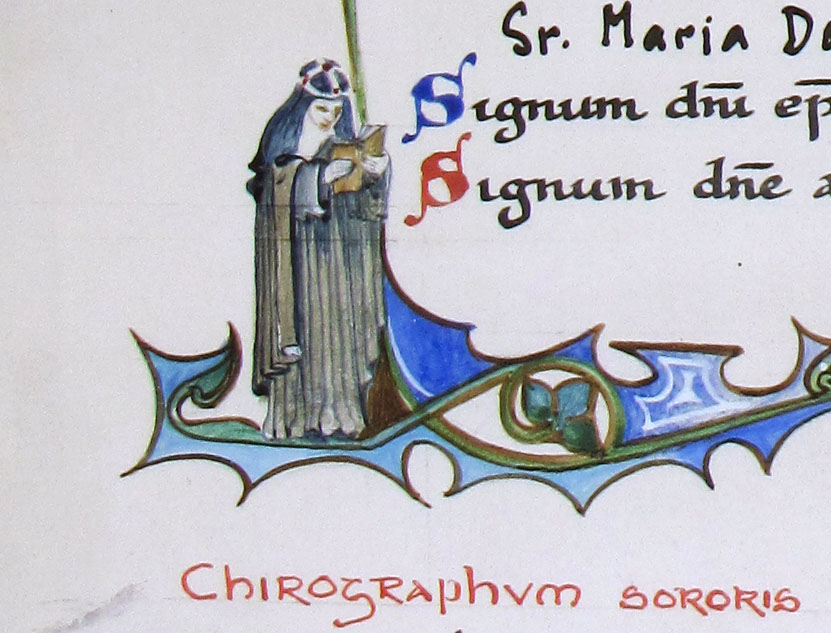 Sr. Maria
Signum dni
Signum dne
Chirographvm sororis